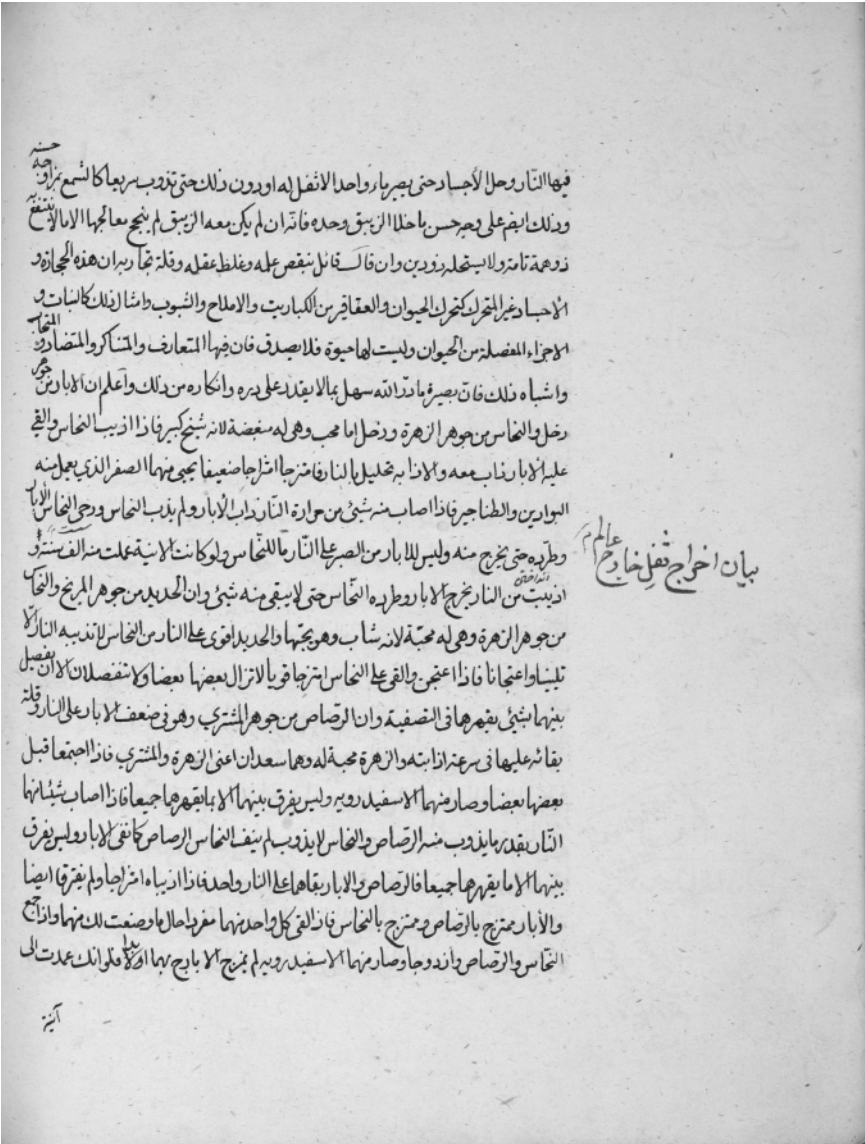 فيها النّار وحل الأجساد حتى يصير ماء واحدا لا ثفل له او دون ذلك حتى تذوب سريعا كالشمع بمزاوجة حسنة
وذلك ايضم على وجه حسن ما خلا الزيبق وحده فانّه ان لم يكن معه الزيبق لم ينجح معالجها الا مالا ينتفع به
ذوهمة تامة ولا يستحله ذودين وان قال قائل بنقص علمه وغلظ عقله وقلة تجاربه ان هذه الحجارة و
الاجساد غير المتحرك كتحرك الحيوان والعقاقير من الكباريت والاملاح والشبوب وامثال ذلك كالنبات و
الاجزاء المفصلة من الحيوان وليست لها حيوة فلا يصدق فان فيها المتعارف والمتناكر والمتضادون المتحاب
واشباه ذلك فان بصيرة ما ذرالله سهل بما لا يقدر على دره وانكاره من ذلك واعلم ان الابار من جوهر
زحل والنحاس من جوهر الزهرة وزحل لها محب وهى له مبغضة لانه شيخ كبير فاذا اذيب النحاس والقي
عليه الابار ذاب معه والاذابه تحليل بالنار فامتزجا امتزاجا ضعيفا يجيى منهما الصفر الذي يعمل منه
الهوارين والطناجير فاذا اصاب منه شيئ من حرارة النّار ذاب الابار ولم يذب النحاس ورمى النحاس الابار
وطرده حتى يخرج منه وليس للابار من الصبر على النّار ما للنّحاس ولو كانت الانية عملت منه الف سنة و
اذنيت من النار يخرج الابار وطرده النّحاس حتى لا يبقى منه شيئ وان الحديد من جوهر المريخ والنحاس
من جوهر الزهرة وهى له محبّة لانه شاب وهو يحبّها والحديد اقوى على النار من النحاس لا تذيبه النار الّا
تليينا واعتجانا فاذا اعتجن والقى على النحاس امتزجا قويا لا تزال بعضها بعضا ولا تنفصلان الا ان يفصيل
بينهما بشيئ يقهرها فى التصفية وان الرصاص من جوهر المشتري وهو فى ضعف الابار على النار وقلة
بقائه عليها فى سرعة اذابته والزهرة محبة له وهما سعدان اعنى الزهرة والمشتري فاذا اجتمعا قبل
بعضها بعضا وصار منهما الاسفيد رويه وليس يفرق بينهما الا بما يقهرهما جميعا فاذا اصاب شيئا منهما
النّار بقدر ما يذوب منه الرصاص والنحاس لا يذوب لم ينف النحاس الرصاص كما نفى الابار وليس يفرق
بينهما الا ما يقهرهما جميعا فالرصاص والابار بقاهما على النار واحد فاذا اذيباه امتزاجا ولم يفترقا ايضا
والأبار ممتزج بالرصاص وممتزج بالنحاس فاذ القى كل واحد منهما مفرد احال ما وصنعت لك منهما واذا جمع
النّحاس والرصاص وازدوجا وصار منهما الاسفيد رويه لم يمزج الابارح بهما ابدا فلو انك عمدت الى
آنية
بيان اخراج ثفل خارج
عالم